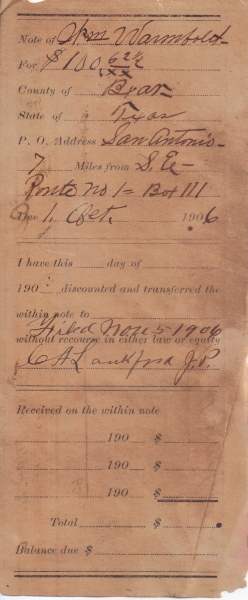 Note of Wm Warmbold
For $100 62/xx
County of Bexar
State of Texas
P. O. Address San Antonio
7 Miles from S. E.
Route No 1 = Box 111
Due 1 Oct. 1906
I have this day of
190 discounted and transferred the
within note to
Filed Nov 5 1906
without recourse in either law or equity
C A Lankford J. P.
Received on the within note
190 $
190 $
190 $
Total $
Balance due $